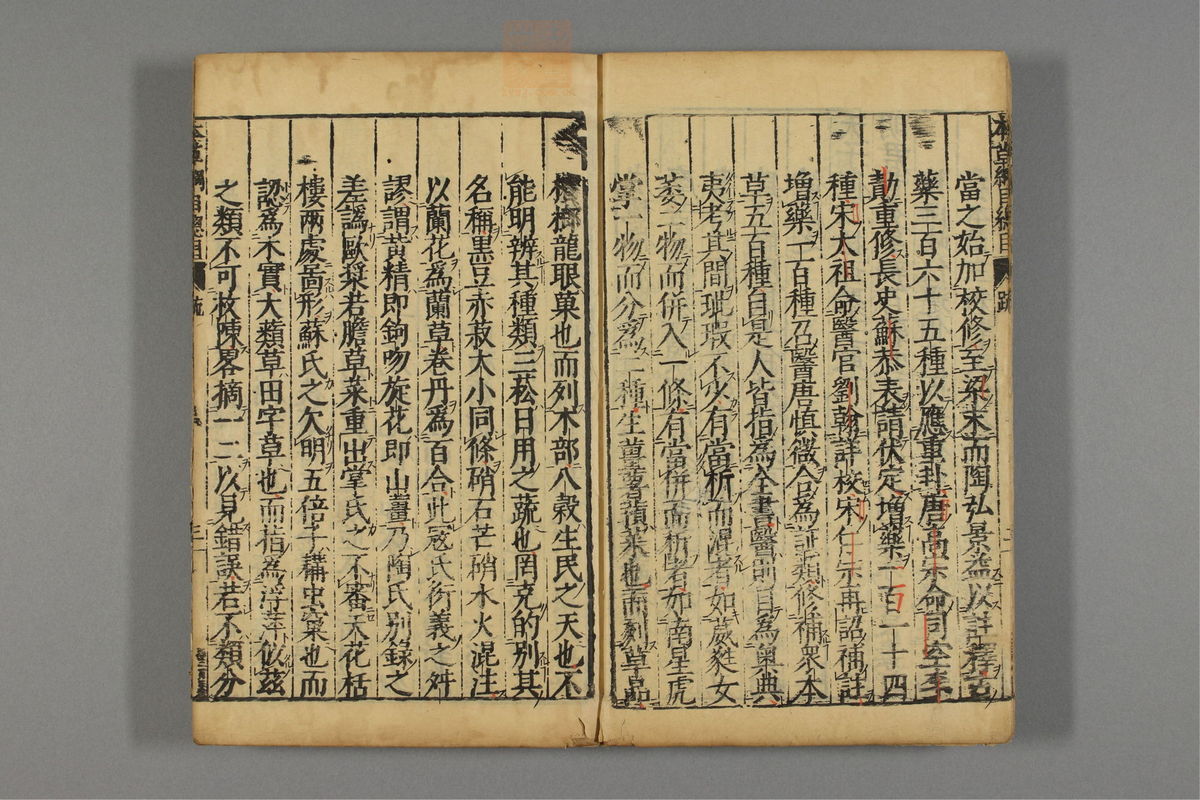 當之始加校修至梁末而陶弘景益以註釋爲
藥三百六十五種以應重卦唐高宗命司空李
勣重修長史蘇恭表請伏定增藥一百一十四
種宋太祖命醫官劉翰詳校宋仁宗再詔補註
增藥一百種召醫唐慎微合為証類修補眾本
草五百種自是人皆指為全書醫則目為奧典
夷考其間玼瑕不少有當析而混者如葳蕤女
萎二物而併入一條有當併而析者如南星虎
掌一物而分為二種生薑薯蕷菜也而列草品
檳榔龍眼菓也而列木部八穀生民之天也不
能明辨其種類三菘日用之蔬也罔克的別其
名稱黑豆赤菽大小同條硝石芒硝水火混注
以蘭花為蘭草卷丹為百合此寇氏衍義之舛
謬謂黃精即鉤吻旋花即山薑乃陶氏別錄之
差譌歐漿苦膽草菜重出掌氏之不審天花栝
樓兩處啚形蘇氏之欠明五倍子構虫窠也而
認為木實大蘋草田字草也而指為浮萍似茲
之類不可枚陳畧摘一二以見錯誤若不類分
本草綱目總目 疏